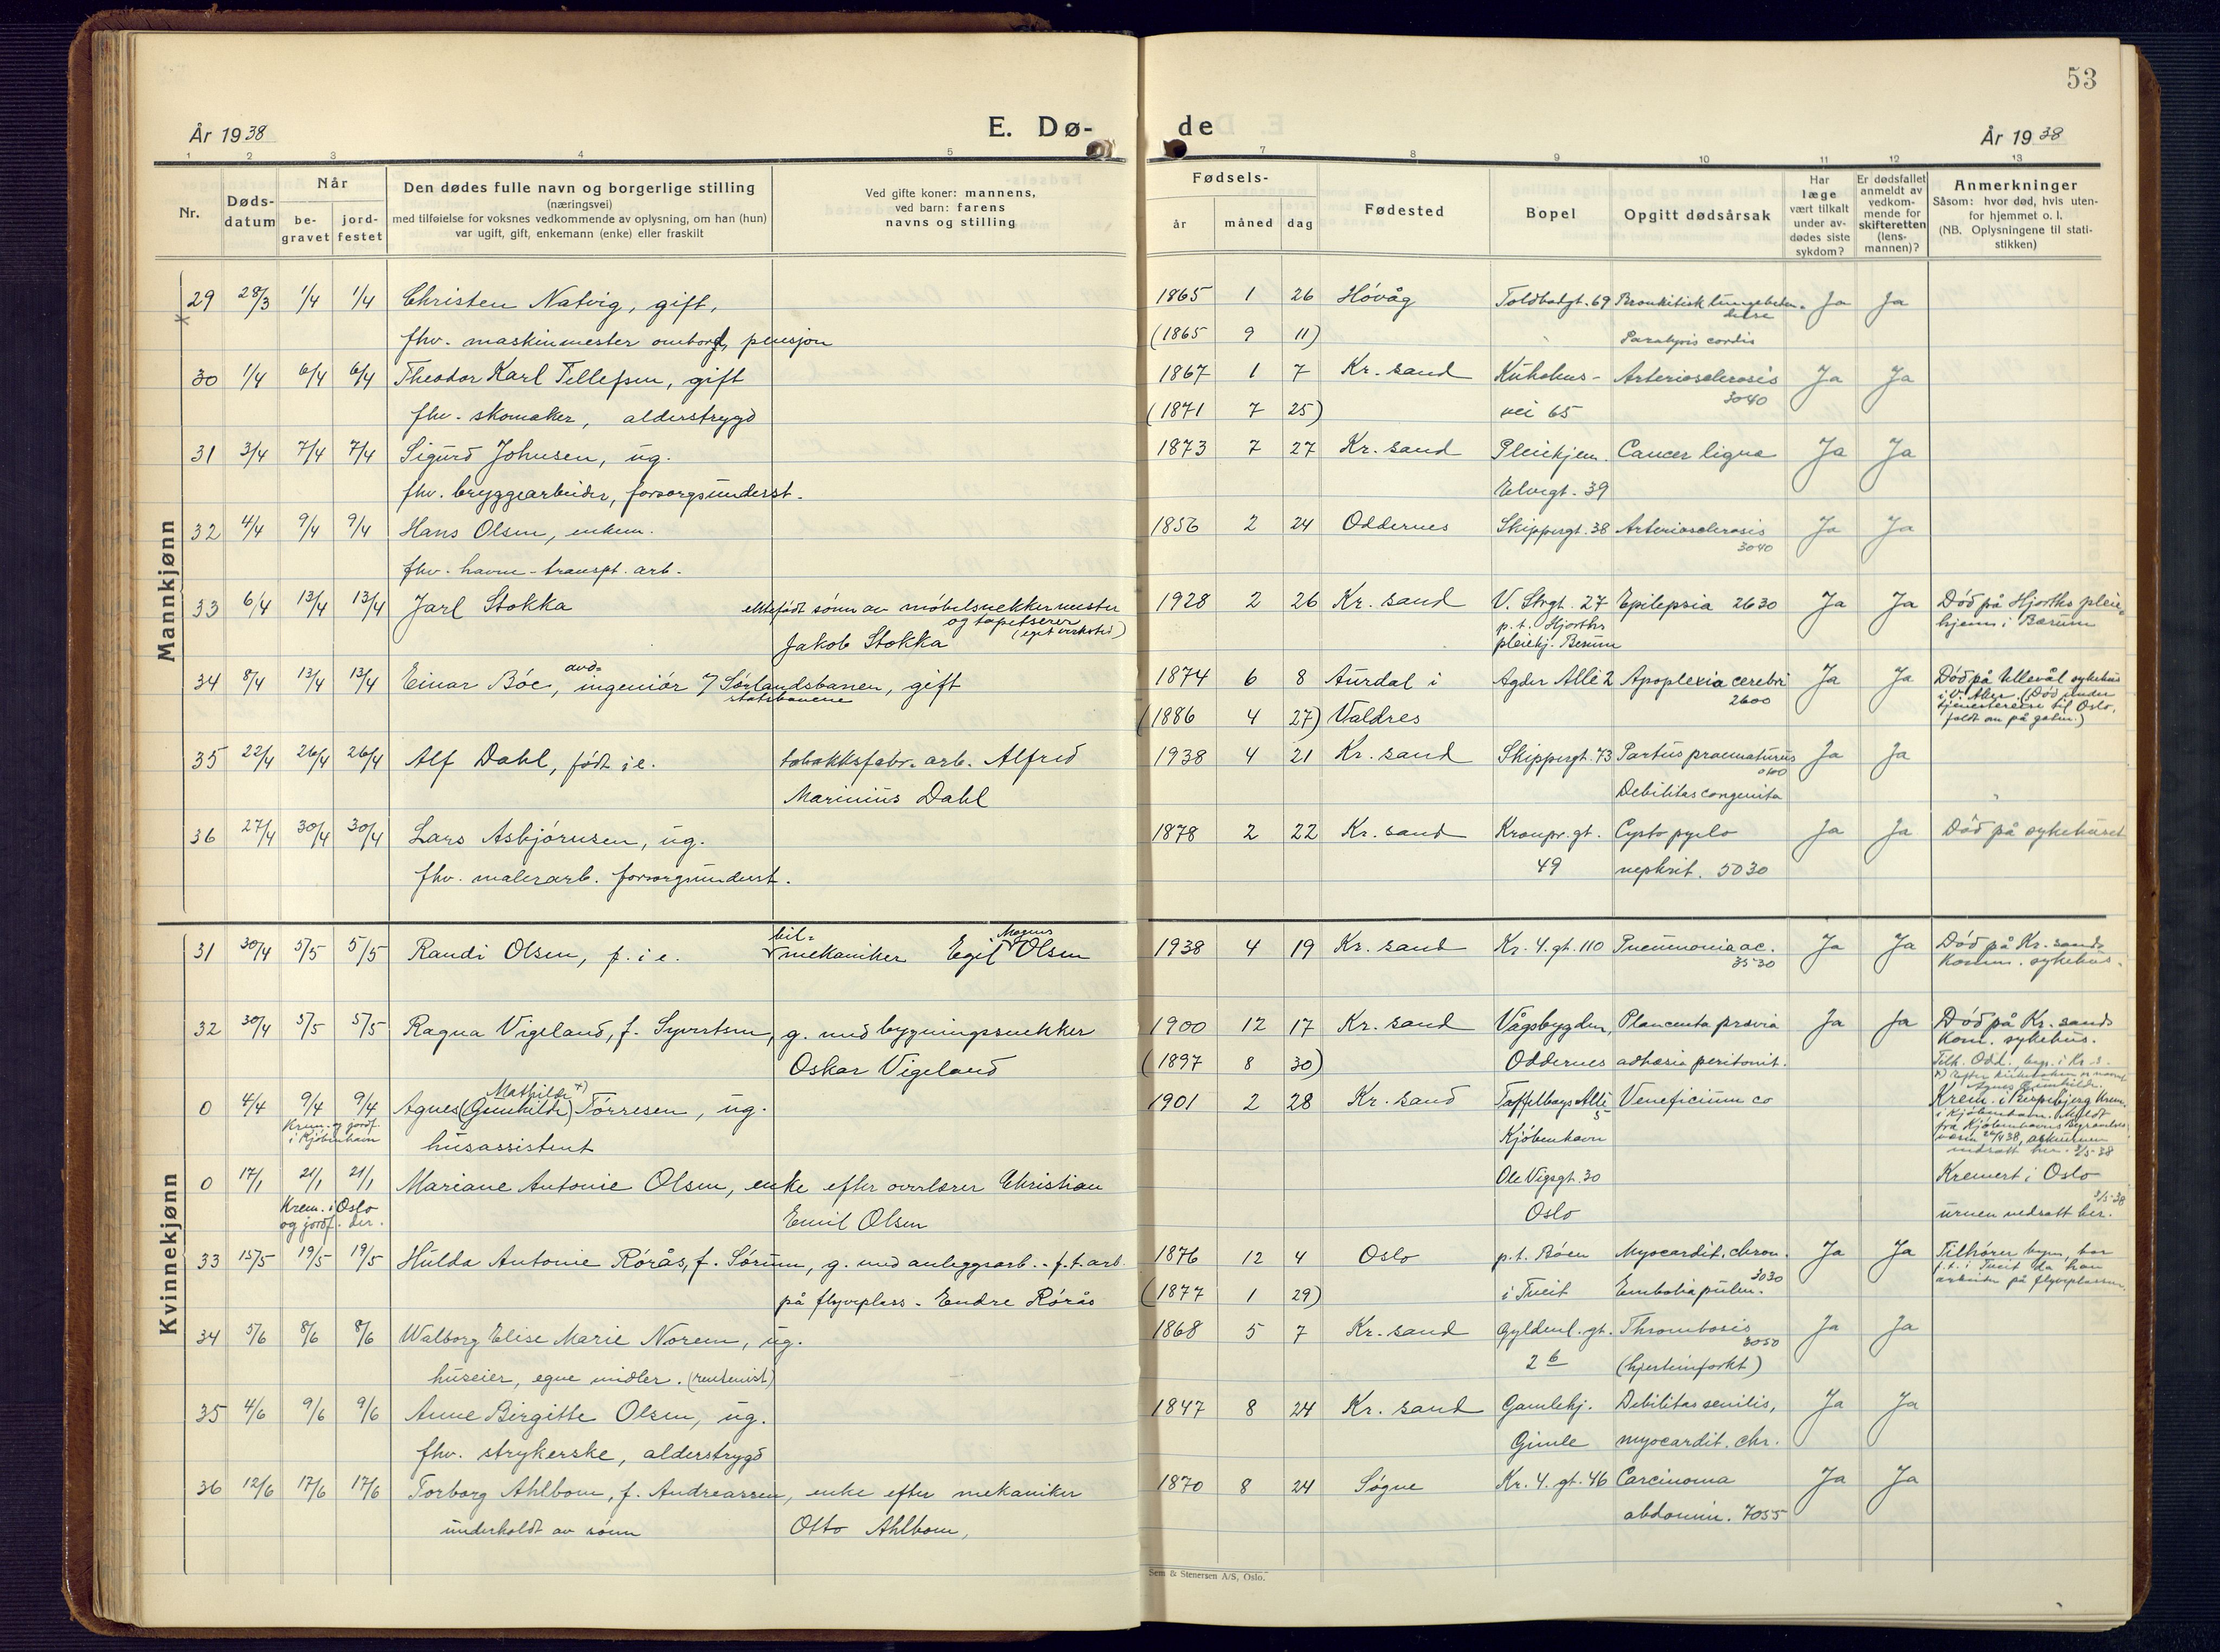 53
År 1938
E. Dø-
de
År 1938
1 2 3 4 5 7 8 9 10 11 12 13
Nr.
Døds-
datum
Når
be-
gravet
jord-
festet
Den dødes fulle navn og borgerlige stilling
(næringsvei)
med tilføielse for voksnes vedkommende av oplysning, om han (hun)
var ugift, gift, enkemann (enke) eller fraskilt
Ved gifte koner: mannens,
ved barn: farens
navns og stilling
Fødsels-
år
måned
dag
Fødested
Bopel
Opgitt dødsårsak
Har
læge
vært tilkalt
under av-
dødes siste
sykdom?
Er dødsfallet
anmeldt av
vedkom-
mende for
skifteretten
(lens-
mannen)?
Anmerkninger
Såsom: hvor død, hvis uten-
for hjemmet o. l.
(NB. Oplysningene til stati-
stikken)
Mannkjønn
29 28/3 1/4 1/4 Christen Natvig, gift, 1865 1 26 Høvåg Toldbodgt. 69 Ja Ja
fhv. maskinmester ombord, pensjon (1865 9 11) Paralysis cordis
30 1/4 6/4 6/4 Theodor Karl Tellefsen, gift 1867 1 7 Kr. sand Kuholms- Arteriosclerosis Ja Ja
3040
fhv. skomaker, alderstrygd (1871 7 25) vei 65
31 3/4 7/4 7/4 Sigurd Johnsen, ug. 1873 7 27 Kr. sand Pleiehjem. Cancer Ja Ja
fhv. bryggearbeider, forsorgsunderst. Elvegt. 39
32 4/4 9/4 9/4 Hans Olsen, enkem. 1856 2 24 Oddernes Skippergt. 38 Arteriosclerosis Ja Ja
3040
fhv. havne-transpt. arb.
33 6/4 13/4 13/4 Jarl Stokka ektefødt sønn av møbelsnekkermester 1928 2 26 Kr. sand V. Strgt. 27 Epilepsia 2630 Ja Ja Død på Hjorths pleie-
og tapetserer
(eget verksted)
Jakob Stokka p. t. Hjorths
pleiehj. Berum
hjem i Bærum
34 8/4 13/4 13/4 Einar Bøe, avd= ingeniør v/ Sørlandsbanen, gift 1874 6 8 Aurdal i Agder Allé 2 Apoplexia cerebri Ja Ja Død på Ullevål sykehus
statsbanene
2600
(1886 4 27) Valdres
i V. Aker. (Død under
tjenestereise til Oslo,
faldt om på gaten.)
35 22/4 26/4 26/4 Alf Dahl, født i e. tobakksfabr. arb. Alfred 1938 4 21 Kr. sand Skippergt. 73 Partus praematurus Ja Ja
Marinius Dahl Debilitas congenita
36 27/4 30/4 30/4 Lars Asbjørnsen, ug. 1878 2 22 Kr. sand Kronpr. gt. Cysto pyelo Ja Ja Død på sykehuset
fhv. malerarb. forsorgsunderst. 49 nephrit. 5030
Kvinnekjønn
31 30/4 5/5 5/5 Randi Olsen, f. i e. bil= mekaniker Egil Magnus Olsen 1938 4 19 Kr. sand Kr. 4. gt. 110 Pneumonia ac. Ja Ja Død på Kr. sands
3530
Komm. sykehus.
32 30/4 5/5 5/5 Ragna Vigeland, f. Syvertsen, g. med bygningssnekker 1900 12 17 Kr. sand Vågsbygden, Plancenta prævia Ja Ja Død på Kr. sands
Oskar Vigeland (1897 8 30) Oddernes peritonit. Kom. sykehus.
Tilh. Odd. begr. i Kr. s.
0 4/4 9/4 9/4 Agnes (Gunhilde) Mathilde x) Tørresen, ug. 1901 2 28 Kr. sand Taffelbays Allé Veneficium co
5
Krem. og jordf.
i Kjøbenhavn
husassistent Kjøbenhavn
Agnes Gunhilde.
Krem. i Bispebjerg Krem.
i Kjøbenhavn. Meldt
fra Kjøbenhavns
askeurnen
nedsatt her 2/5-38
0 17/1 21/1 21/1 Mariane Antonie Olsen, enke efter overlærer Christian Ole Vigsgt. 30 Kremert i Oslo
Krem. i Oslo
og jordf. der.
Emil Olsen Oslo 2/5-38
urnen nedsatt her.
33 15/5 19/5 19/5 Hulda Antonie Rørås, f. Sørum, g. med anleggsarb. - f. t. arb. 1876 12 4 Oslo p. t. Bøen Myocardit. chron. Ja Ja Tilhører byen, bor
3030
på flyveplass - Endre Rørås (1877 1 29) i Tveit Embolia pulm. f. t. i Tveit da han
arbeider på flyveplassen.
34 5/6 8/6 8/6 Walborg Elise Marie Norem, ug. 1868 5 7 Kr. sand Gyldenl. gt. Thrombosis Ja Ja
3050
huseier, egne midler. (rentenist) 2 b (hjerteinfarkt)
35 4/6 9/6 9/6 Anne Birgitte Olsen, ug. 1847 8 24 Kr. sand Gamlehj. Debilitas senilis, Ja Ja
fhv. strykerske, alderstrygd Gimle myocardit. chr.
36 12/6 17/6 17/6 Torborg Ahlbom, f. Andreassen, enke efter mekaniker 1870 8 24 Søgne Kr. 4. gt. 46 Carcinoma Ja Ja
underholdt av sønn Otto Ahlbom, abdomin. 7055
Sem & Stenersen A/S, Oslo.